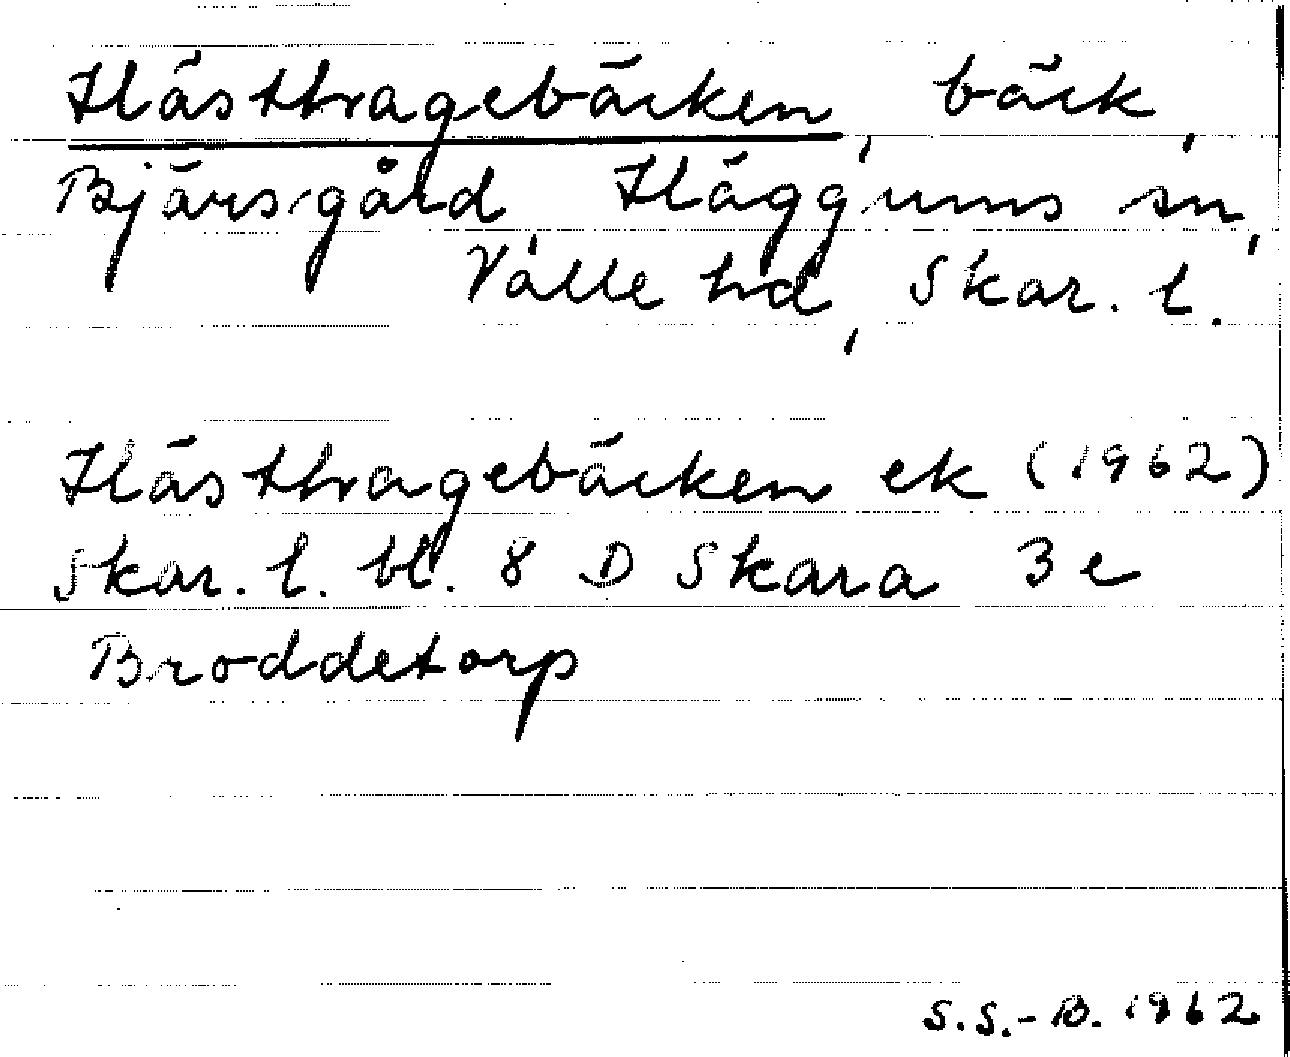 Hästhragebäcken, bäck,
Bjärsgård Häggums sn,
Valle hd, Skar. l.
Hästhragebäcken ek (1962)
Skar. l. bl. 8 D Skara 3e
Broddetorp
S.S.-B. 1962